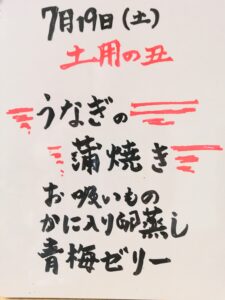 7月19日(土)
土用の丑
うなぎの
蒲焼き
お吸いもの
かに入り卵蒸し
青梅ゼリー